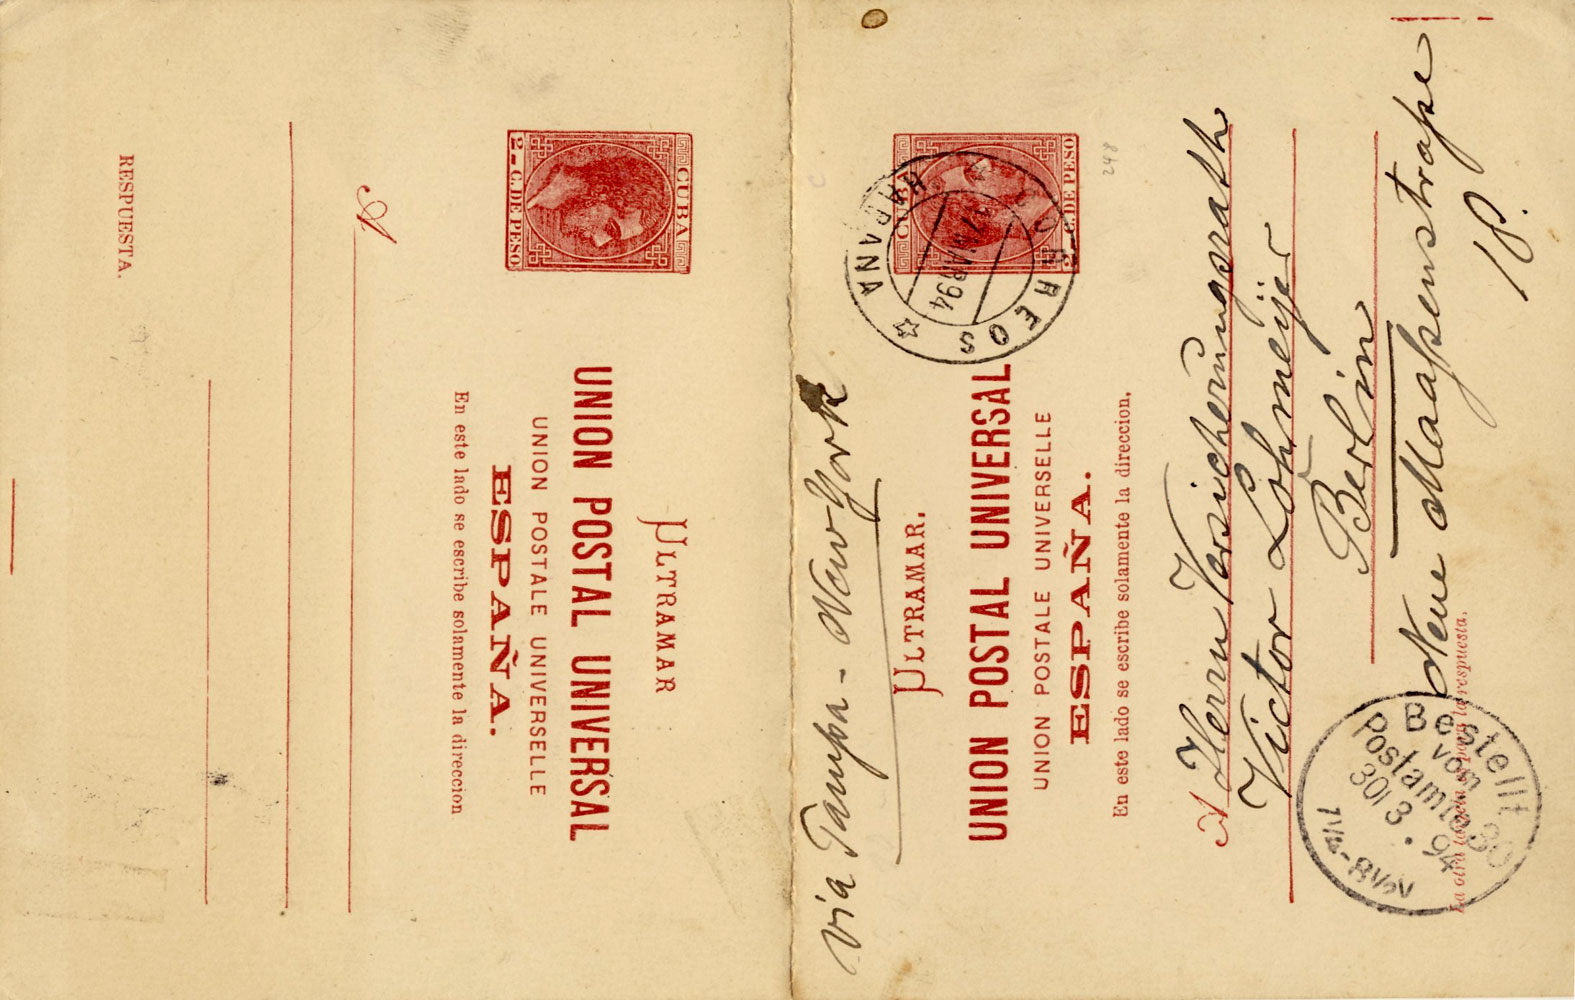 RESPUESTA.
A
En este lado se escribe solamente la direccion
ESPAÑA.
UNION POSTALE UNIVERSELLE
UNION POSTAL UNIVERSAL
ULTRAMAR
CUBA
2-C. DE PESO
via Tampa - New-York
ULTRAMAR.
UNION POSTAL UNIVERSAL
UNION POSTALE UNIVERSELLE
ESPAÑA.
En este lado se escribe solamente la direccion,
CUBA
2-C. DE PESO
CORREOS
HABANA
MAR 94
248
A Herrn Versicherungsrath
Victor Lohmeijer
Berlin
Neue Maaßenstraße
18.
La otra tarjeta es para la respuesta.
Bestellt
vom
Postamte 30
30 / 3. 94
7 1/2 - 8 1/2 V